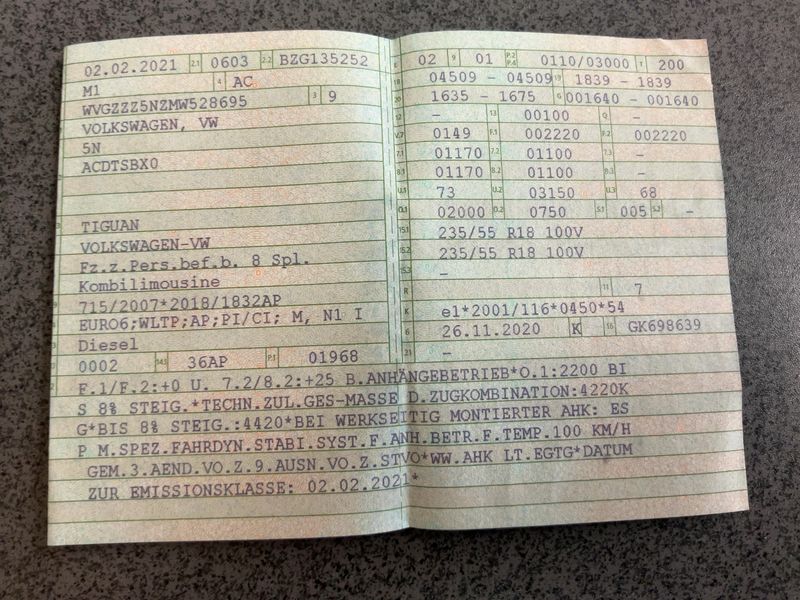 02.02.2021 2.1 0603 2.2 BZG135252
M1 4 AC
WVGZZZ5NZMW528695 3 9
VOLKSWAGEN, VW
5N
ACDTSBX0
TIGUAN
VOLKSWAGEN-VW
Fz.z.Pers.bef.b. 8 Spl.
Kombilimousine
715/2007*2018/1832AP
EURO6;WLTP;AP;PI/CI; M, N1 I
Diesel
0002 14.1 36AP P.1 01968
02 9 01 P.2 P.4 0110/03000 T 200
18 04509 - 04509 19 1839 - 1839
20 1635 - 1675 G 001640 - 001640
12 - 13 00100 Q -
V.7 0149 F.1 002220 F.2 002220
7.1 01170 7.2 01100 7.3 -
8.1 01170 8.2 01100 8.3 -
U.1 73 U.2 03150 U.3 68
O.1 02000 O.2 0750 S.1 005 S.2 -
15.1 235/55 R18 100V
15.2 235/55 R18 100V
15.3 -
R 11 7
K e1*2001/116*0450*54
6 26.11.2020 K 16 GK698639
21 -
F.1/F.2:+0 U. 7.2/8.2:+25 B.ANHÄNGEBETRIEB*O.1:2200 BI
S 8% STEIG.*TECHN.ZUL.GES-MASSE D.ZUGKOMBINATION:4220K
G*BIS 8% STEIG.:4420*BEI WERKSEITIG MONTIERTER AHK: ES
P M.SPEZ.FAHRDYN.STABI.SYST.F.ANH.BETR.F.TEMP.100 KM/H
GEM.3.AEND.VO.Z.9.AUSN.VO.Z.STVO*WW.AHK LT.EGTG*DATUM
ZUR EMISSIONSKLASSE: 02.02.2021*